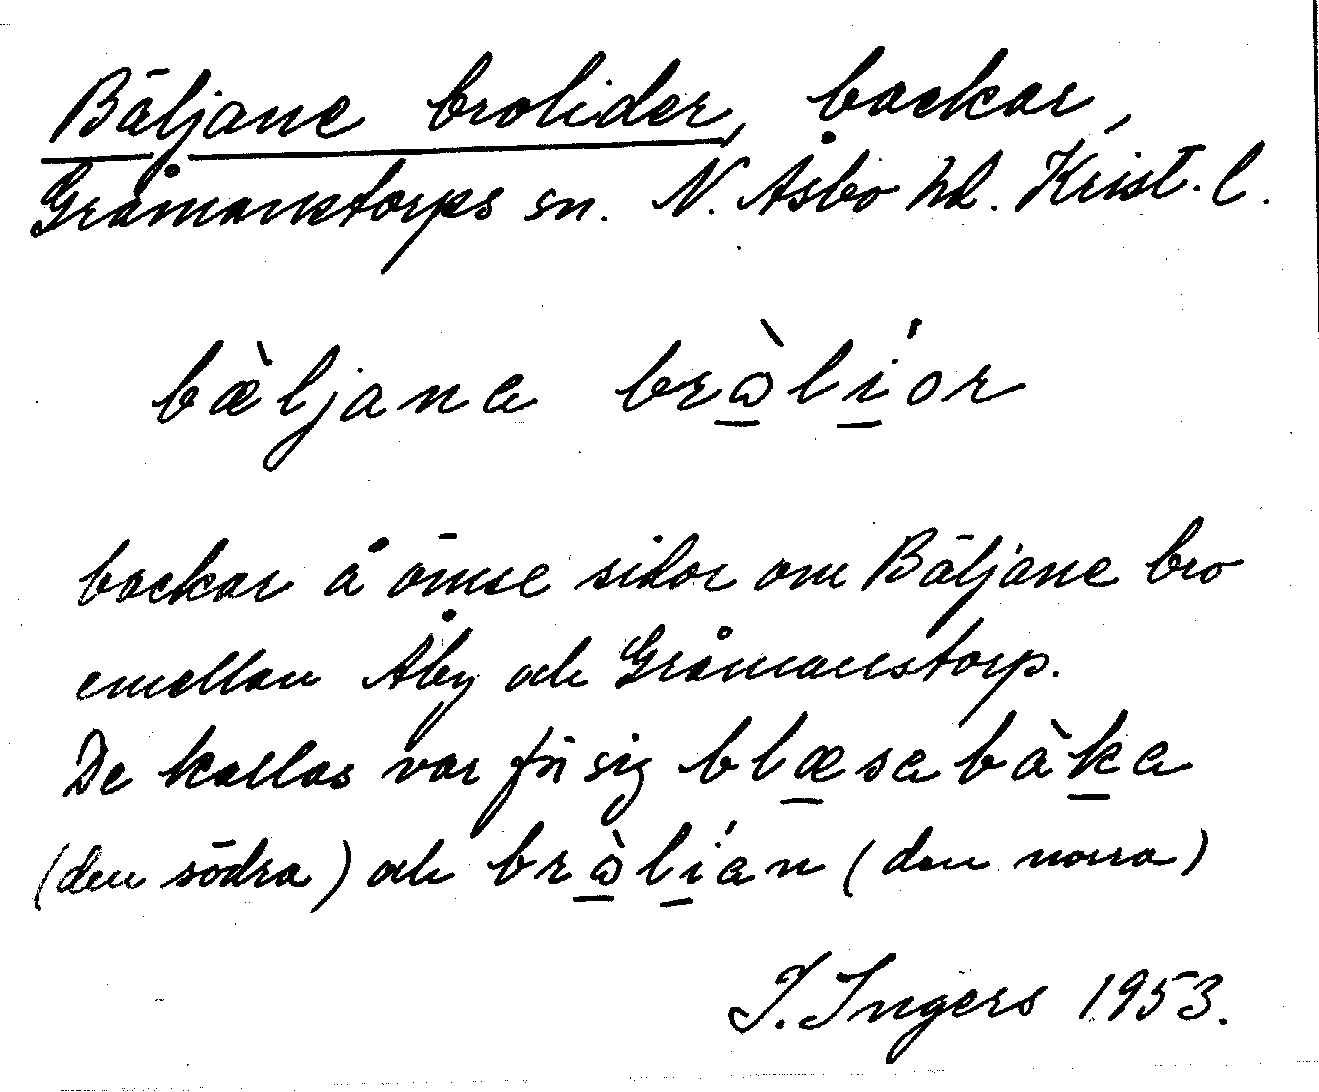 Bäljane brolider, backar,
Gråmanstorps sn. N. Åsbo hd. Krist. l.
bæ̀ljana brɷ̀líor
backar å ömse sidor om Bäljane bro
emellan Åby och Gråmanstorp.
De kallas var för sig blæsabàka
(den södra) och brɷ̀lían (den norra)
I. Ingers 1953.